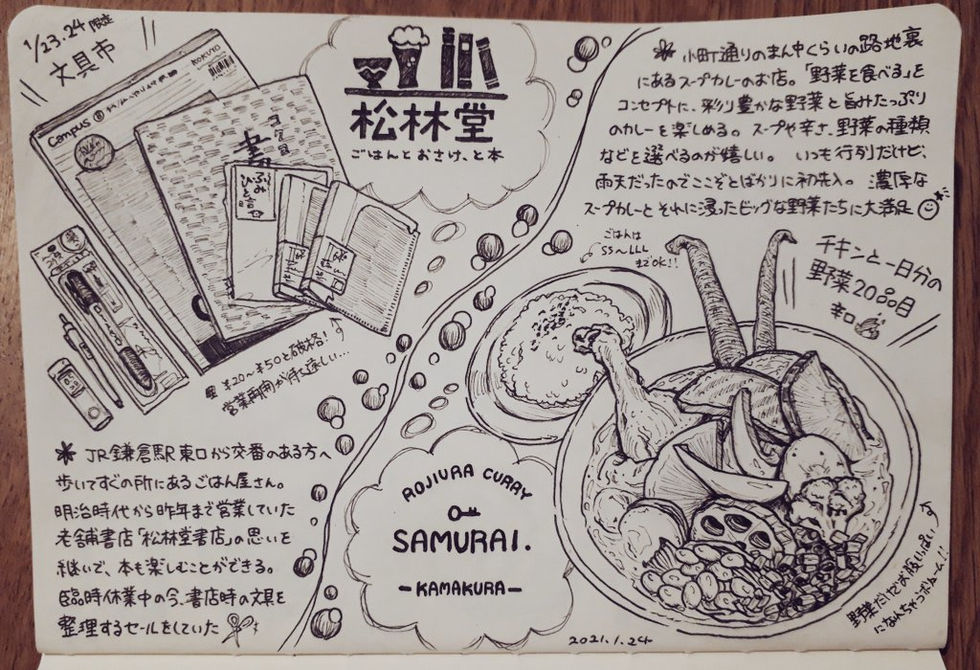 1/23.24 限定
文具市
Campus
KOKUYO
松林堂
ごはんとおさけ、と本
¥20〜¥50と破格!
営業再開が待ち遠しい…
* JR鎌倉駅東口から交番のある方へ
歩いてすぐの所にあるごはん屋さん。
明治時代から昨年まで営業していた
老舗書店「松林堂書店」の思いを
継いで、本も楽しむことができる。
臨時休業中の今、書店時の文具を
整理するセールをしていた
* 小町通りのまん中くらいの路地裏
にあるスープカレーのお店。「野菜を食べる」を
コンセプトに、彩り豊かな野菜と旨みたっぷり
のカレーを楽しめる。スープや辛さ、野菜の種類
などを選べるのが嬉しい。いつも行列だけど、
雨天だったのでここぞとばかりに初突入。濃厚な
スープカレーとそれに浸ったビッグな野菜たちに大満足
ごはんは
SS〜LLL
までOK!!
チキンと一日分の
野菜20品目
辛口
ROJIURA CURRY
SAMURAI.
-KAMAKURA-
野菜だけでお腹いっぱい
になんちゃうボリューム!!
2021.1.24